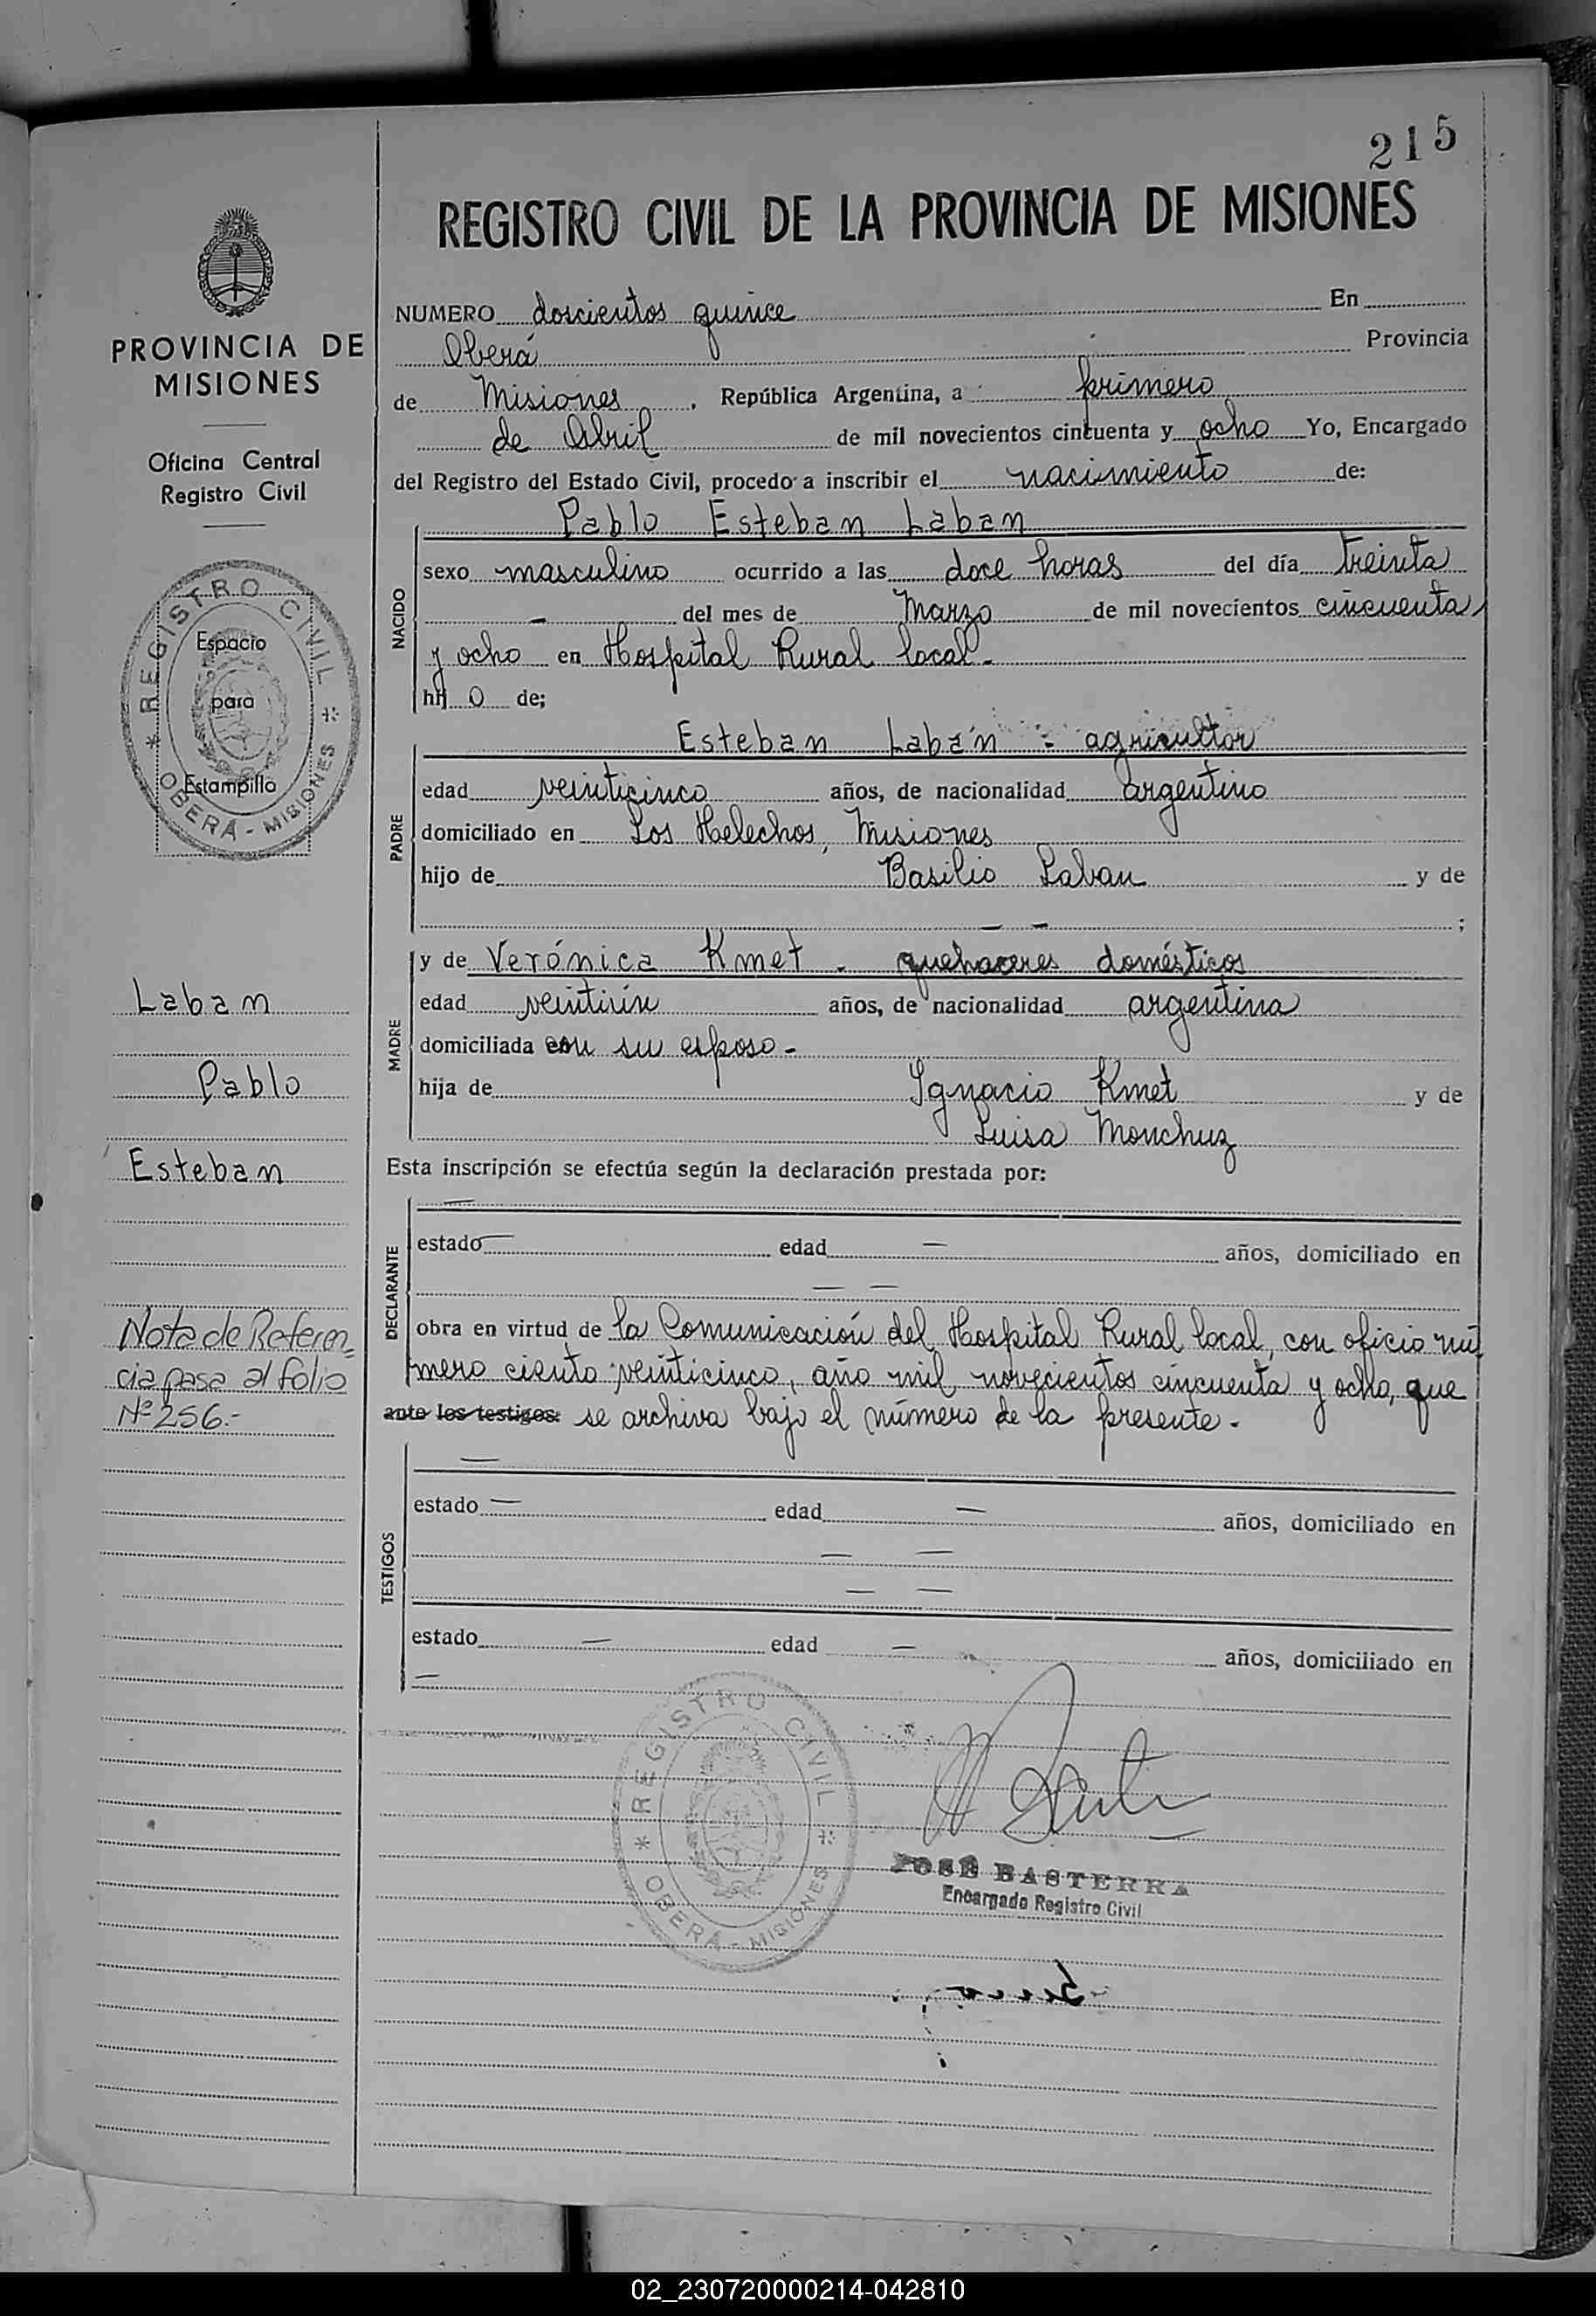 215
REGISTRO CIVIL DE LA PROVINCIA DE MISIONES
PROVINCIA DE
MISIONES
Oficina Central
Registro Civil
REGISTRO CIVIL
Espacio
para
Estampillo
* OBERÁ - MISIONES *
Laban
Pablo
Esteban
Nota de Referen=
cia pasa al folio
Nº 256.-
NUMERO doscientos quince En
Oberá Provincia
de Misiones, República Argentina, a primero
de Abril de mil novecientos cincuenta y ocho Yo, Encargado
del Registro del Estado Civil, procedo a inscribir el nacimiento de:
Pablo Esteban Laban
NACIDO
sexo masculino ocurrido a las doce horas del día treinta
- del mes de Marzo de mil novecientos cincuenta
y ocho en Hospital Rural local.-
hij o de;
PADRE
Esteban Labán - agricultor
edad veinticinco años, de nacionalidad argentino
domiciliado en Los Helechos, Misiones
hijo de Basilio Laban y de
— — ;
MADRE
y de Verónica Kmet - quehaceres domésticos
edad veintiún años, de nacionalidad argentina
domiciliada con su esposo -
hija de Ignacio Kmet y de
Luisa Monchuz
Esta inscripción se efectúa según la declaración prestada por:
DECLARANTE
—
estado — edad — años, domiciliado en
— —
obra en virtud de la Comunicación del Hospital Rural local, con oficio nú
mero ciento veinticinco, año mil novecientos cincuenta y ocho, que
ante los testigos: se archiva bajo el número de la presente.-
TESTIGOS
—
estado — edad — años, domiciliado en
— —
— —
estado — edad — años, domiciliado en
—
REGISTRO CIVIL
* OBERÁ - MISIONES *
JOSÉ BASTERRA
Encargado Registro Civil
02_230720000214-042810